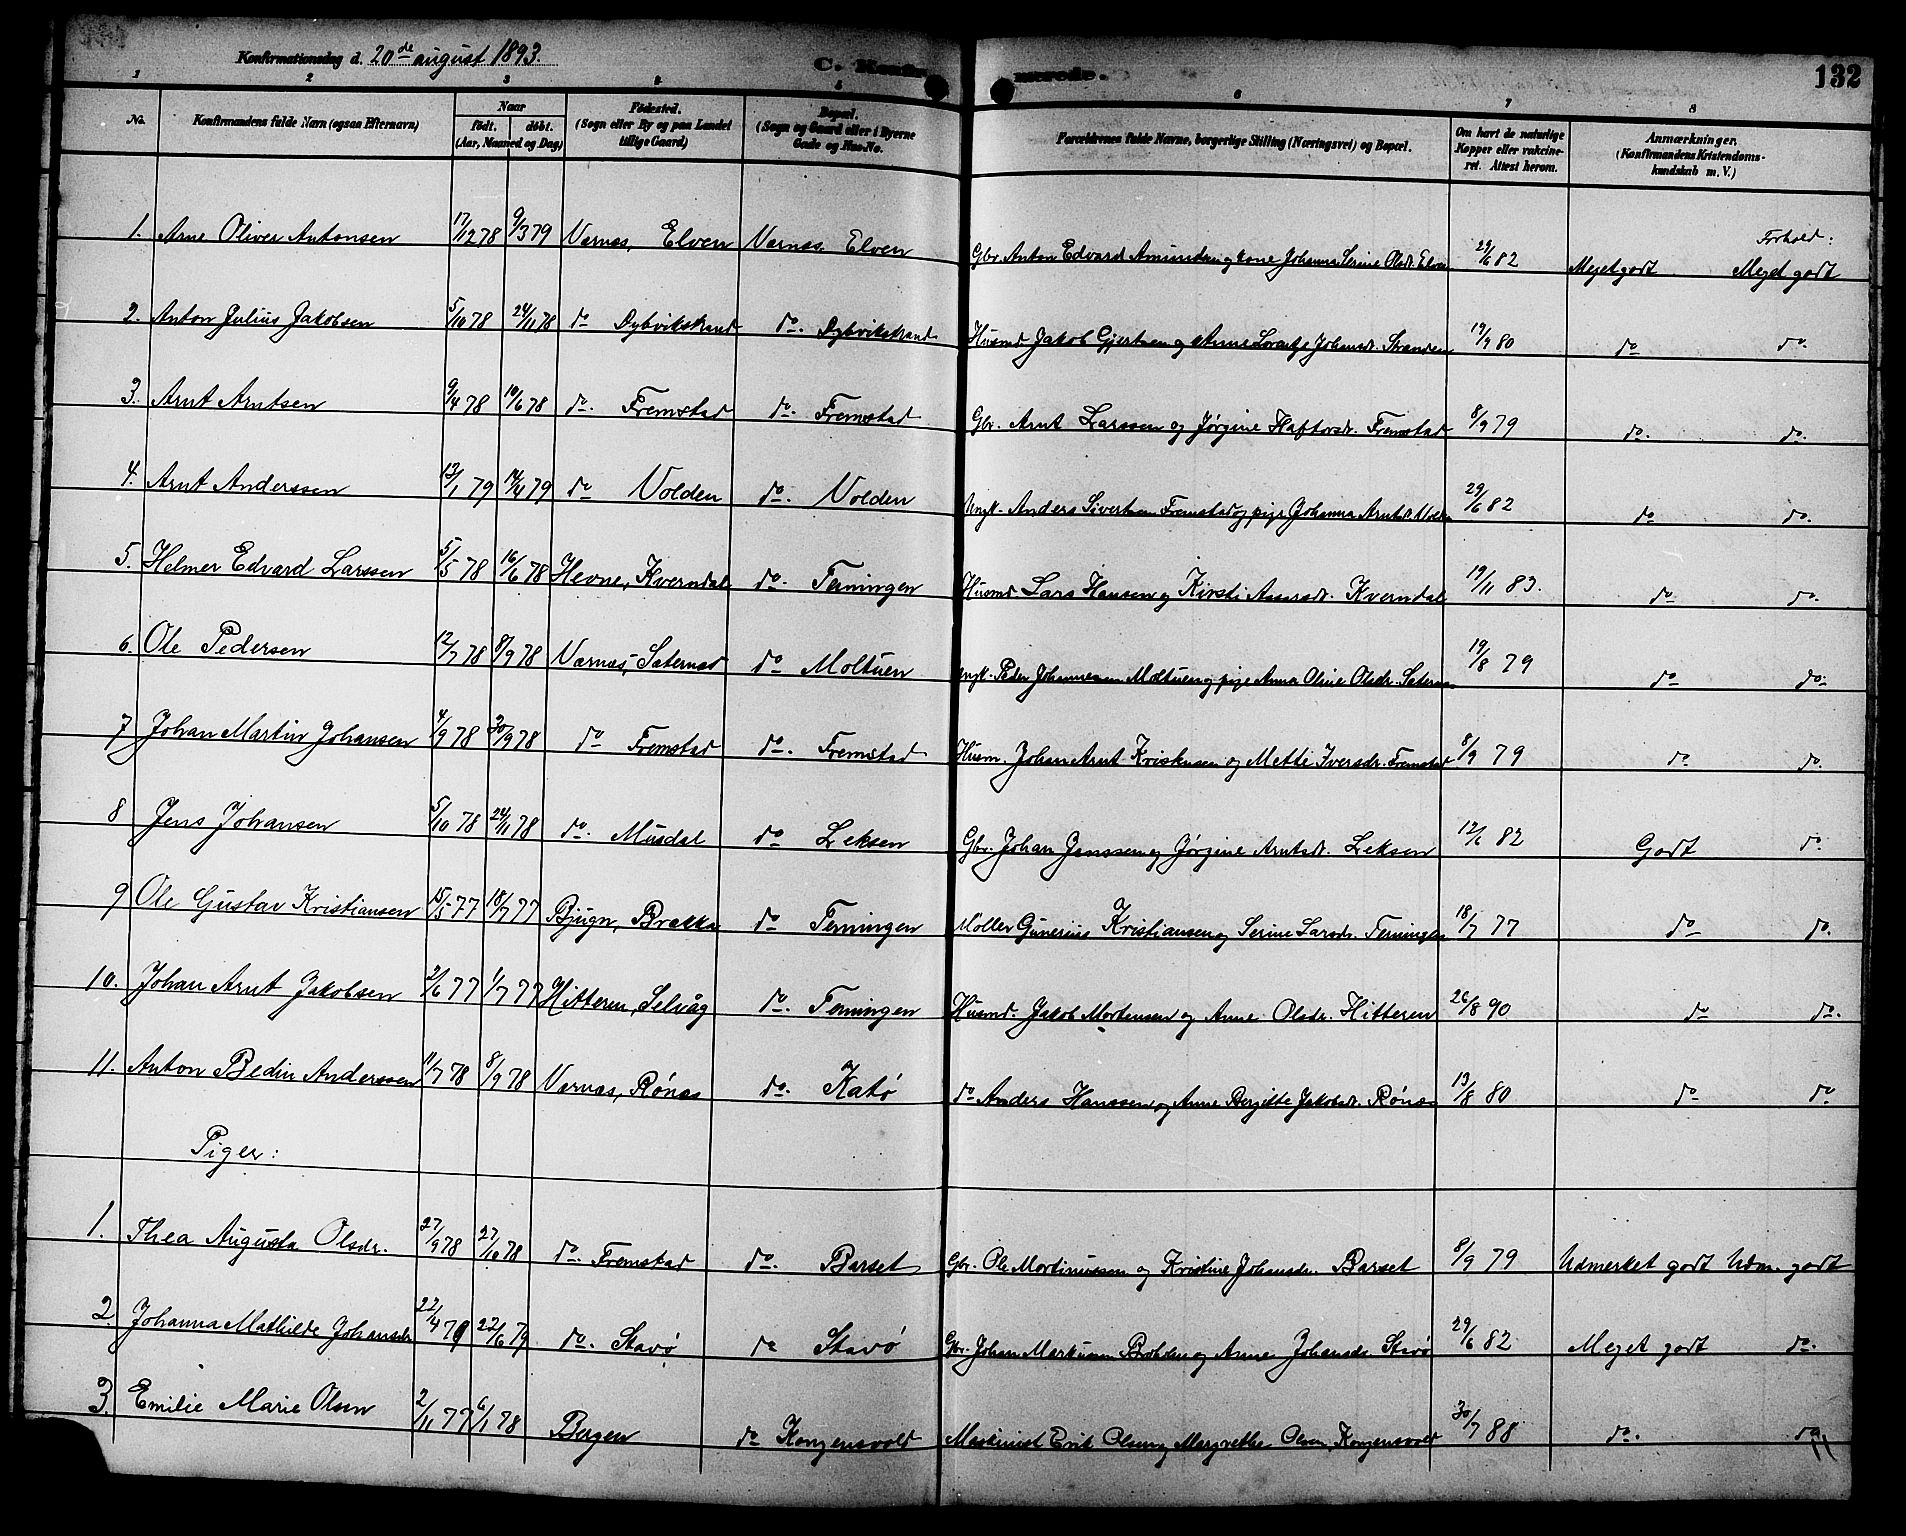 Konfirmationsdag d. 20de august 1893. C. Konfir merede. 132
1 2 3 4 5 6 7 8
No. Konfirmandens fulde Navn (ogsaa Efternavn) Naar født. døbt. (Aar, Maaned og Dag) Fødested. (Sogn eller By og paa Landet tillige Gaard) Bopæl. (Sogn og Gaard eller i Byerne Gade og Hus-No. Forældrenes fulde Navne, borgerlige Stilling (Næringsvei) og Bopæl. Om havt de naturlige Kopper eller vakcineret. Attest herom. Anmærkninger. (Konfirmandens Kristendomskundskab m. V.)
Forhold:
1. Arne Oliver Antonsen 17/12 78 9/3 79 Værnæs, Elven Værnæs Elven Gbr. Anton Edvard Amundsen og kone Johanna Serine Olsdr. Elven 29/6 82 Meget godt Meget godt
2. Anton Julius Jakobsen 5/10 78 24/11 78 do Dybvikstrand do. Dybvikstrand Husmd Jakob Gjertsen og Anne Johansdr. Stranden 19/9 80 do do.
3. Arnt Arntsen 9/4 78 10/6 78 do. Fremstad do. Fremstad Gbr. Arnt Larssen og Jørgine Haftorsdr. Fremstad 8/9 79 do. do.
4. Arnt Anderssen 13/1 79 14/4 79 do Volden do. Volden Ungk. Anders Sivertsen Fremstad og pige Johanna Arntsdr. 29/6 82 do do.
5. Helmer Edvard Larssen 5/5 78 16/6 78 Hevne, Kverndal do. Terningen Husmd. Lars Hansen og Kirsti Kverndal 19/11 83. do do.
6. Ole Pedersen 12/7 78 8/9 78 Værnæs Sæternæs do Moltuen Ungk. Peder Johannessen Moltuen og pige Anna Oline Olsdr. 19/8 79 do do.
7 Johan Martin Johansen 4/9 78 30/9 78 do Fremstad do. Fremstad Husm. Johan Arnt Kristensen og Mette Iversdr. Fremstad 8/9 79 do do.
8 Jens Johansen 5/10 78 24/11 78 do. Musdal do Leksen Gbr. Johan Janssen og Jørgine Arntsdr. Leksen 12/6 82 Godt do
9 Ole Gustav Kristiansen 15/5 77 18/7 77 Bjugn, Brækka do Terningen Møller Gunerius Kristiansen og Serine Larsdr. Terningen 18/7 77 do do.
10. Johan Arnt Jakobsen 2/6 77 1/7 77 Hitteren, Selvåg do. Terningen Husmd. Jakob Mortensen og Anne Olsdr. Hitteren 26/8 90 do do.
11. Anton Bedin Anderssen 11/7 78 8/9 78 Værnæs, Rønæs do. Katø do Anders Hanssen og Anne Bergitte Jakobsdr. Rønæs 13/8 80 do do
Piger:
1. Thea Augusta Olsdr. 27/9 78 27/10 78 do. Fremstad do. Barset Gbr. Ole Martinussen og Kristine Johansdr. Barset 8/9 79 Udmerket godt Udm. godt
2. Johanna Mathilde Johansdr 22/4 79 22/6 79 do. Stavø do Stavø Gbr. Johan Markussen og Anne Johansdr. Stavø 29/6 82 Meget godt do.
3. Emilie Marie Olsen 2/11 77 6/1 78 Bergen do Kongensvold Maskinist Erik Olsen og Margrethe Olsen, Kongensvold 30/7 88 do. do